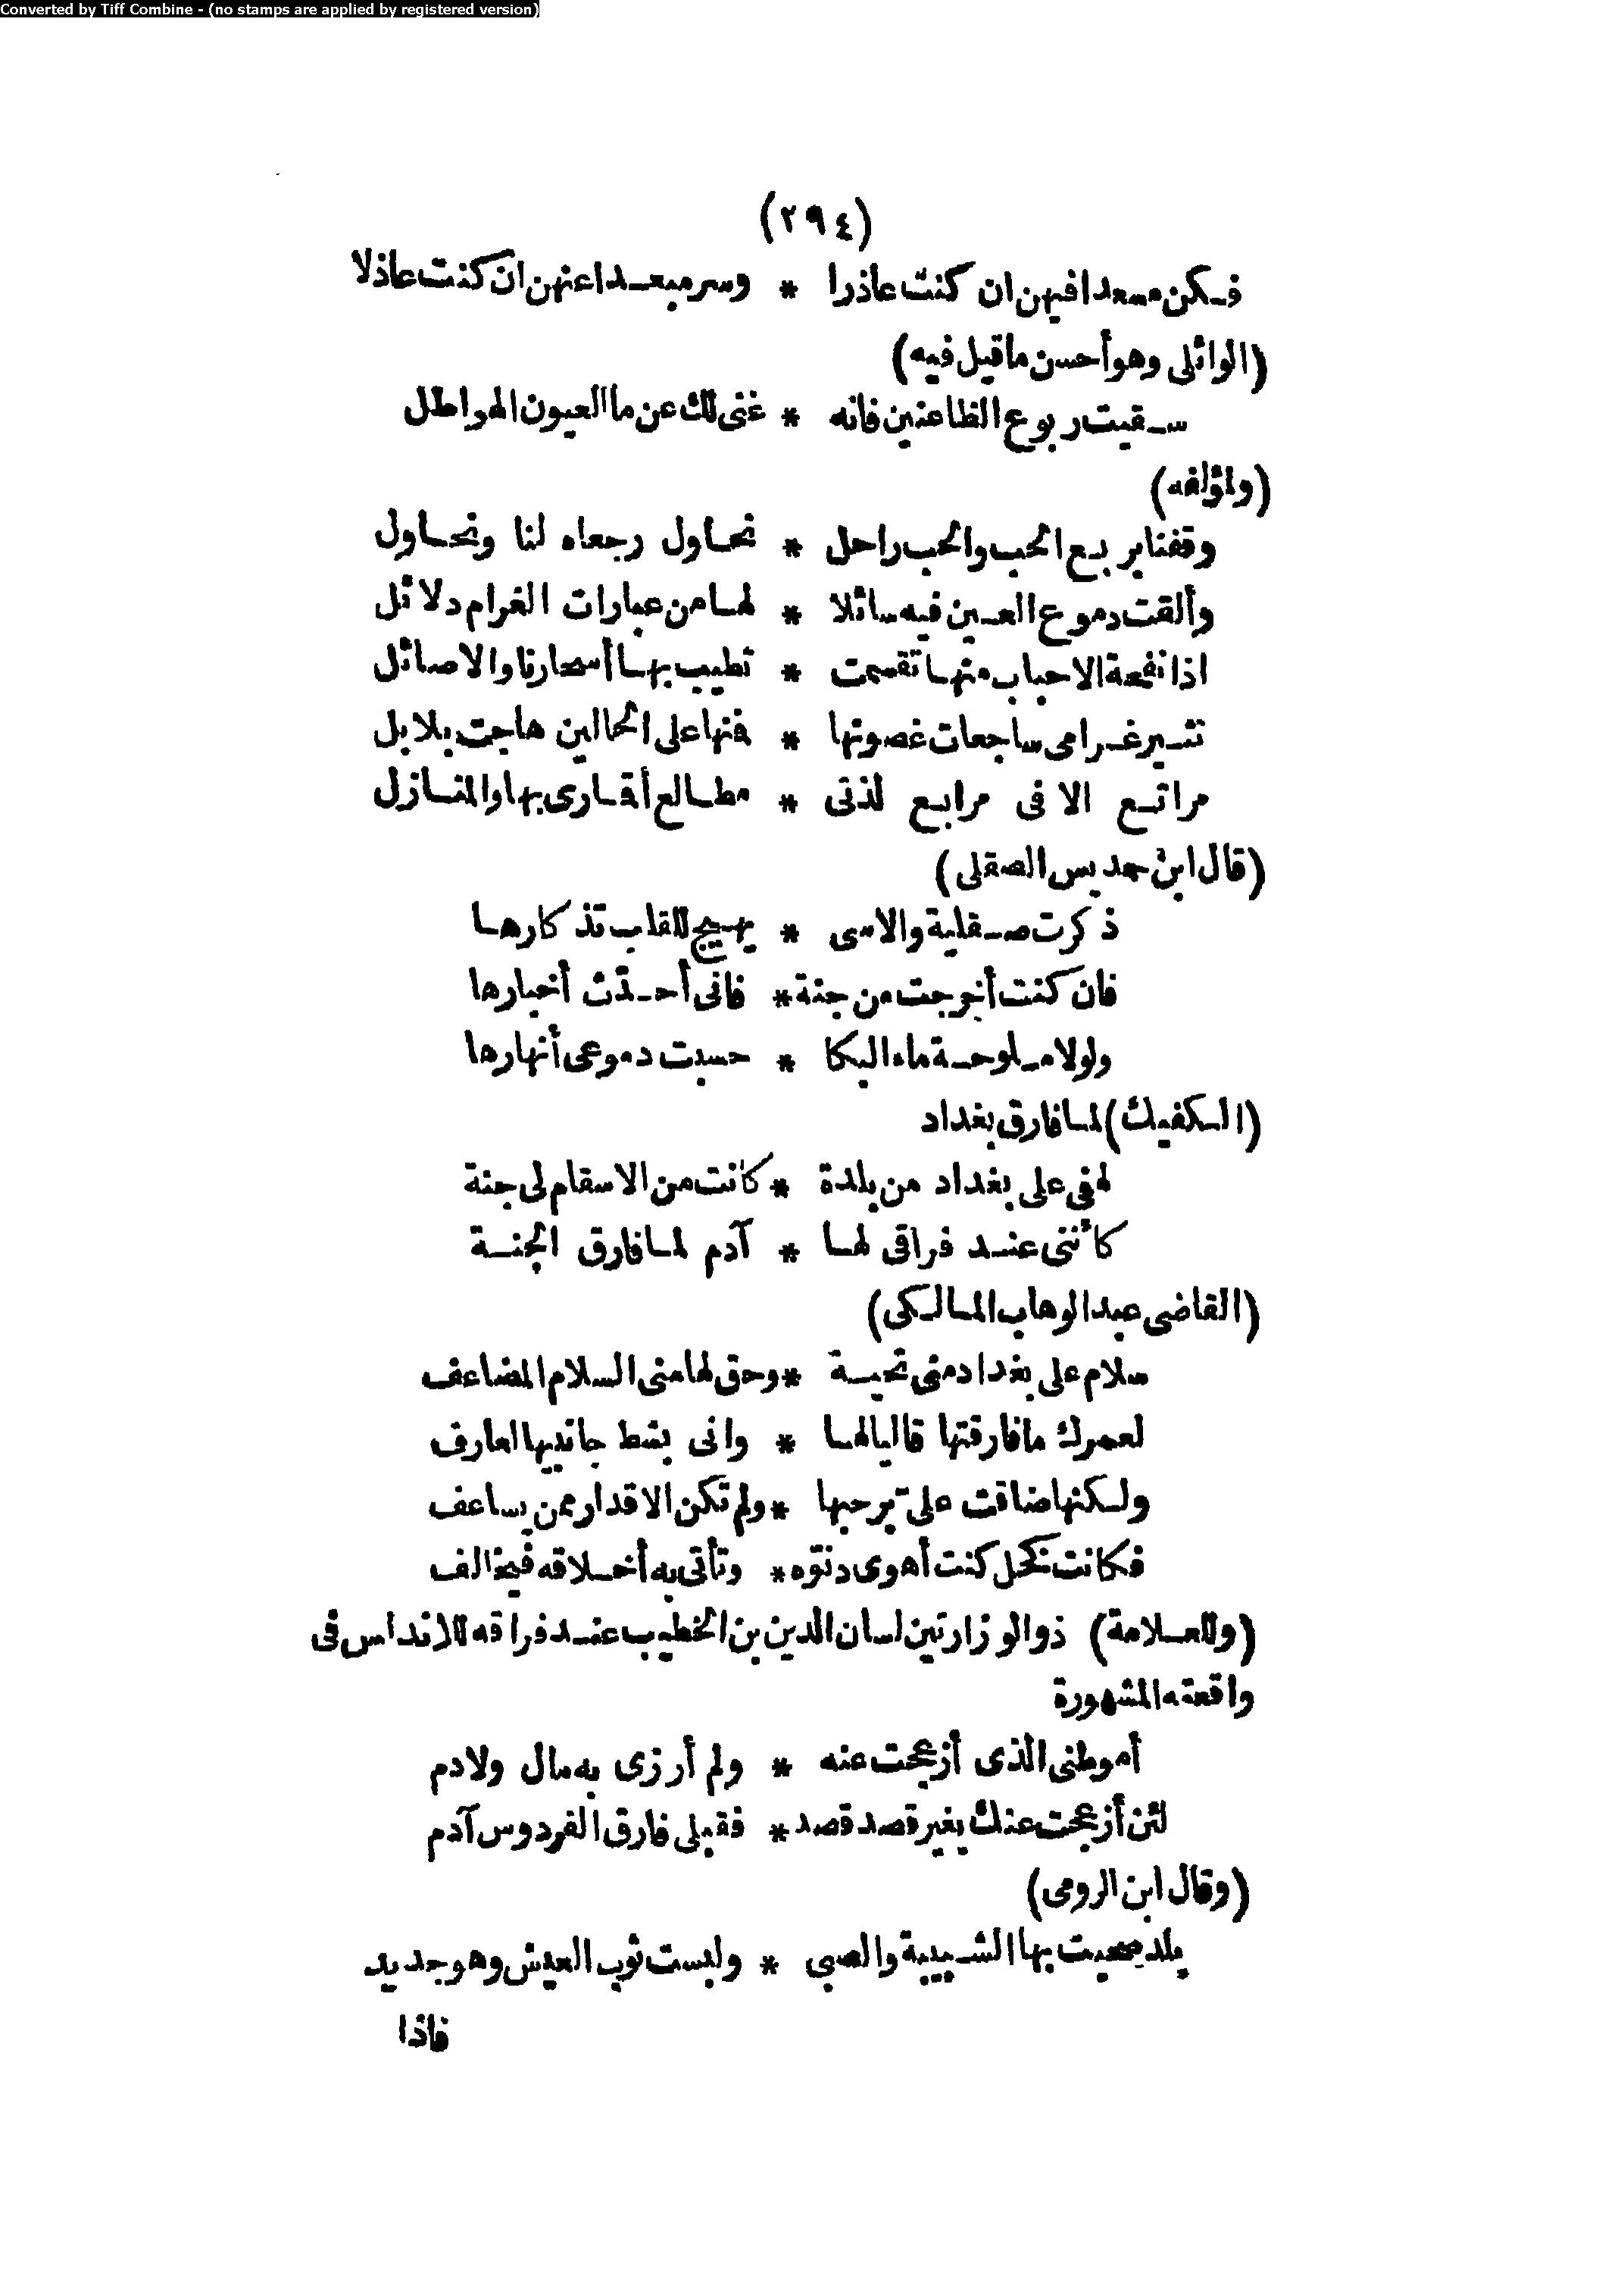 Converted by Tiff Combine - (no stamps are applied by registered version)
(٢٩٤)
فكن مسعدا فيهن ان كنت عاذرا * وسر مبعدا عنهن ان كنت عاذلا
(الوائلى وهو أحسن ماقيل فيه)
سقيت ربوع الظاعنين فانه * غنى لك عن ما العيون الهواطل
(ولمؤلفه)
وقفنا بربع الحب والحب راحل * نحاول رجعاه لنا ونحاول
وألقت دموع العين فيه سائلا * لها من عبارات الغرام دلائل
اذا نفحة الاحباب منها تقسمت * تطيب بها أسحارنا والاصائل
تثير غرامى ساجعات غصونها * فنها على الحالين هاجت بلابل
مراتع الا فى مرابع لذتى * مطالع أقمارى بها والمنازل
(قال ابن حمديس الصقلى)
ذكرت صقلية والاسى * يهيج للقلب تذكارها
فان كنت أخرجت من جنة * فانى أحدّث أخبارها
ولولا ملوحة ماء البكا * حسبت دموعى أنهارها
(الكفيك) لما فارق بغداد
لهفى على بغداد من بلدة * كانت من الاسقام لى جنة
كأننى عند فراقى لها * آدم لما فارق الجنة
(القاضى عبد الوهاب المالكى)
سلام على بغداد منى تحية * وحق لها منى السلام المضاعف
لعمرك مافارقتها قاليا لها * وانى بشط جانبيها لعارف
ولكنها ضاقت علىّ برحبها * ولم تكن الاقدار ممن يساعف
فكانت كخل كنت أهوى دنوّه * وتأتى به أخلاقه فيخالف
(وللعلامة) ذو الوزارتين لسان الدين بن الخطيب عند فراقه للاندلس فى
واقعته المشهورة
أموطنى الذى أزعجت عنه * ولم أرزى به مال ولا دم
لئن أزعجت عنك بغير قصد قصد * فقبلى فارق الفردوس آدم
(وقال ابن الرومى)
بلد صحبت بها الشبيبة والصبى * ولبست ثوب العيش وهو جديد
فاذا